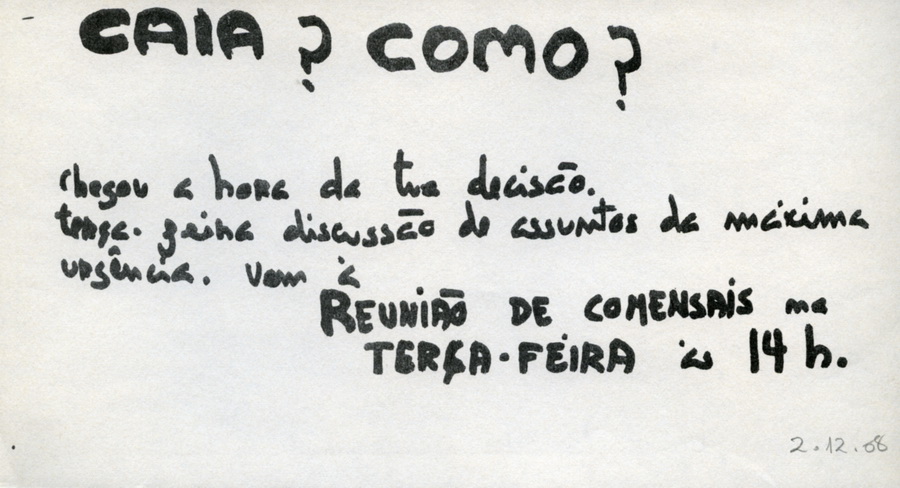 CAIA? COMO?
Chegou a hora da tua decisão.
terça-feira discussão de assuntos da máxima
urgência. Vem à
REUNIÃO DE COMENSAIS na
TERÇA-FEIRA às 14 h.
2.12.68